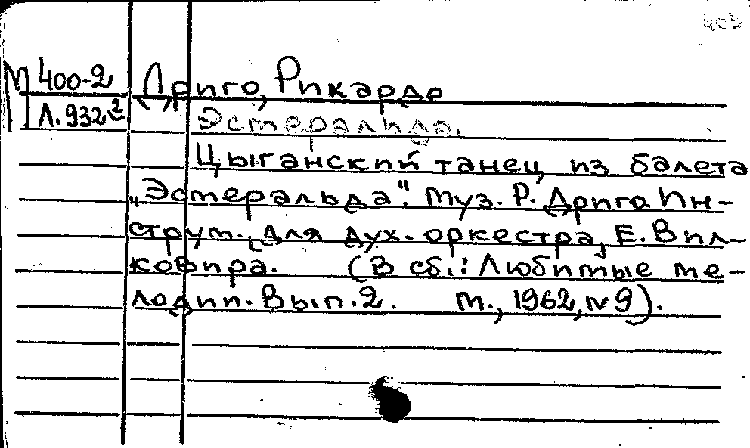 М 400-2 Дриго, Рикардо
Л.932² Эсмеральда.
Цыганский танец из балета
„Эсмеральда". Муз. Р. Дриго. Ин-
струм. для дух. оркестра, Е. Вил-
ковира. (В сб.: Любимые ме-
лодии. Вып. 2. М., 1962, №9).